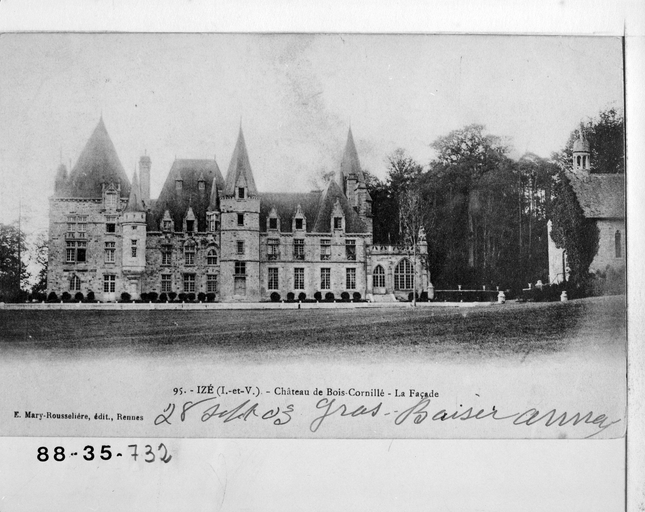 95. - IZÉ (I.-et-V.). - Château de Bois-Cornillé - La Façade
E. Mary-Rousselière, édit., Rennes
28 sept 03 Gros Baiser anna
88-35-732